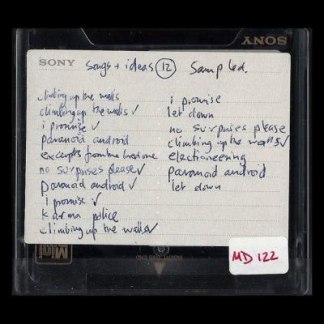 SONY
SONY
songs + ideas 12 Sampled.
climbing up the walls
climbing up the walls ✓
i promise ✓
paranoid android
excerpts from the last one
no surprises please ✓
paranoid android ✓
i promise ✓
karma police
climbing up the walls ✓
i promise
let down
no surprises please
climbing up the walls ✓
electioneering
paranoid android
let down
MD 122
Mini